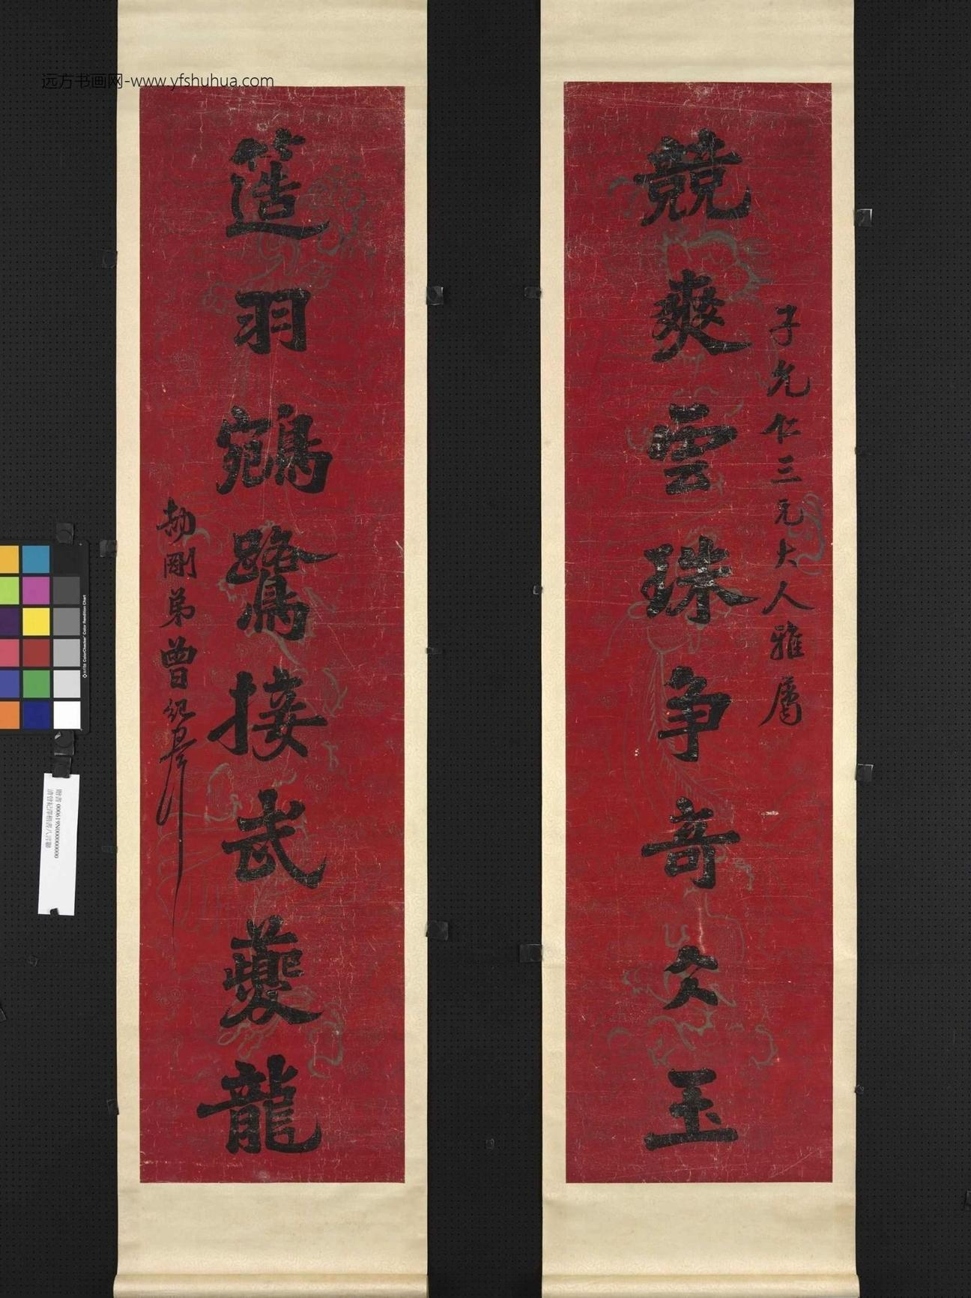 远方书画网-www.yfshuhua.com
子允仁三兄大人雅屬
競爽雲珠争奇文玉
簉羽鵷鷺接武夔龍
劼剛弟曾紀澤